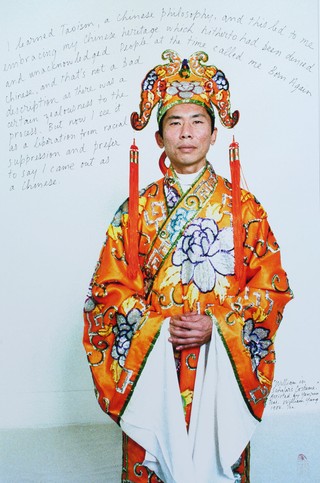 I learned Taoism, a Chinese philosophy, and this led to me
embracing my Chinese heritage which hitherto had been denied
and unacknowledged. People at the time called me Born Again
Chinese and that's not a bad
description as there was a
certain zealousness to the
process. But now I see it
as a liberation from racial
suppression and prefer
to say I came out as
a Chinese.
"William in
Scholars Costume
William Yang